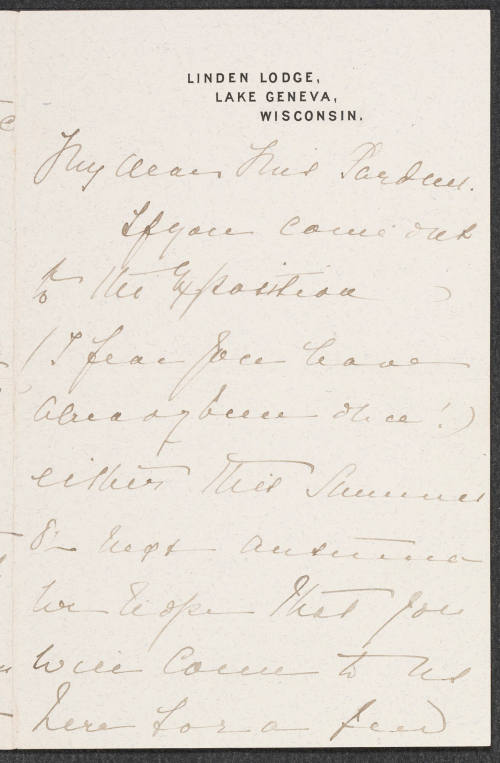 LINDEN LODGE,
LAKE GENEVA,
WISCONSIN.
My dear Mrs Gardner.
If you come out
to the Exposition
(I fear you have
already been once!)
either this Summer
or next autumn
we hope that you
will come to us
here for a few